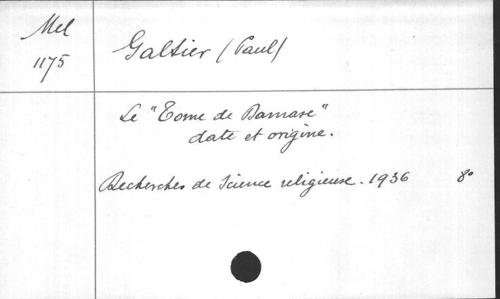 Mel
1175
Galtier (Paul)
Le "Tome de Damase"
date et origine.
Recherches de Science religieuse. 1936 8°